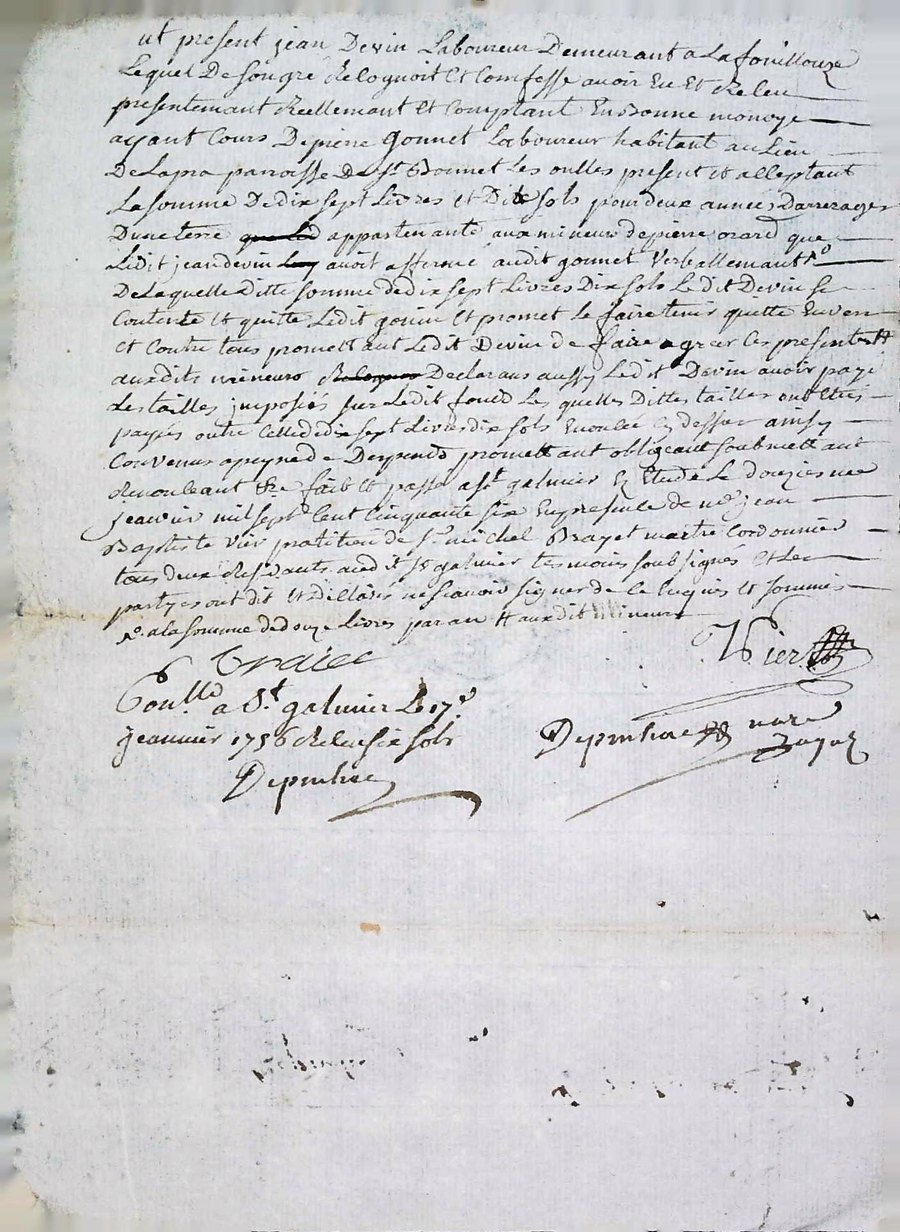 ut present jean Devin Laboureur Demeurant a La fouillouze
Lequel De son gré Recognoit Et Comfesse avoir Eu Et Receu
presentemant Reellemant Et Comptant En bonne monoye
ayant Cours De pierre gonnet Laboureur habitant au Lieu
De Lapra parroisse De St Bonnet Les oulles present et acceptant
La somme De dix sept Livres et Dix sols pour deux années Darrerages
Dune terre appartenante aux mineurs de pierre orard que
Ledit jean devin avoit affermé audit gonnet Verballemant
De Laquelle Ditte somme de dix sept Livres Dix sols Ledit Devin se
Contente et quitte Ledit Et promet Le faire tenir quitte Envers
Et Contre tous promettant Ledit Devin de faire agreer Ces presentes
auxdits mineurs Declarans aussy Ledit Devin avoir payé
Les tailles imposées sur Ledit fond Les quelles Dittes tailles ont Etés
payés outre Celle de dix sept Livres dix sols Enoncée Cy dessus ainsy
Convenus a peyne de Despends promettant obligeant soubmettant
Renonceant &c fait Et passé a St galmier En Etude Le douzieme
jeanvier mil sept Cent Cinquante six En presence de me jean
Baptiste Vier pratitien de Sr michel Brayet maitre Cordonnier
tous deux Residants audit St galmier temoins soubsignés Et Les
partyes ont dit Et declaré ne scavoir signer de Ce Enquis Et sommés
a la somme de douze Livres par an # auxdit mineurs
Vier
Conllé a St galmier Le 17e
jeanvier 1756 Receu six sols
Depinhac
Depinhac nore
Royal